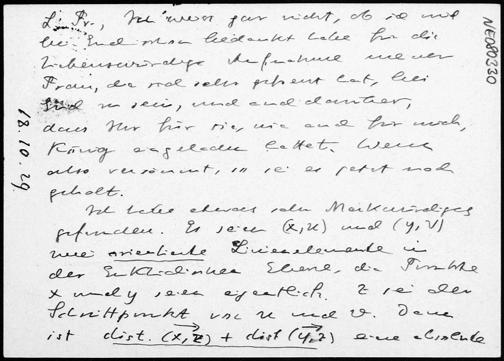 L. Fr., Ich weiss gar nicht, ob ich mich
bei Euch schon bedankt habe für die
liebenswürdige Aufnahme meiner
Frau, die sich sehr gefreut hat, bei
Euch zu sein, und auch darüber,
dass Ihr für sie, wie auch für mich,
König eingeladen hattet. Wenn
also versäumt, so sei es jetzt nach
geholt.
Ich habe etwas sehr Merkwürdiges
gefunden. Es seien (x,u) und (y,v)
zwei orientierte Linienelemente in
der Euklidischen Ebene, die Punkte
x und y seien eigentlich. z sei der
Schnittpunkt von u und v. Dann
ist dist. (x,z) + dist (y,z) eine absolute
18.10.29
NE080330